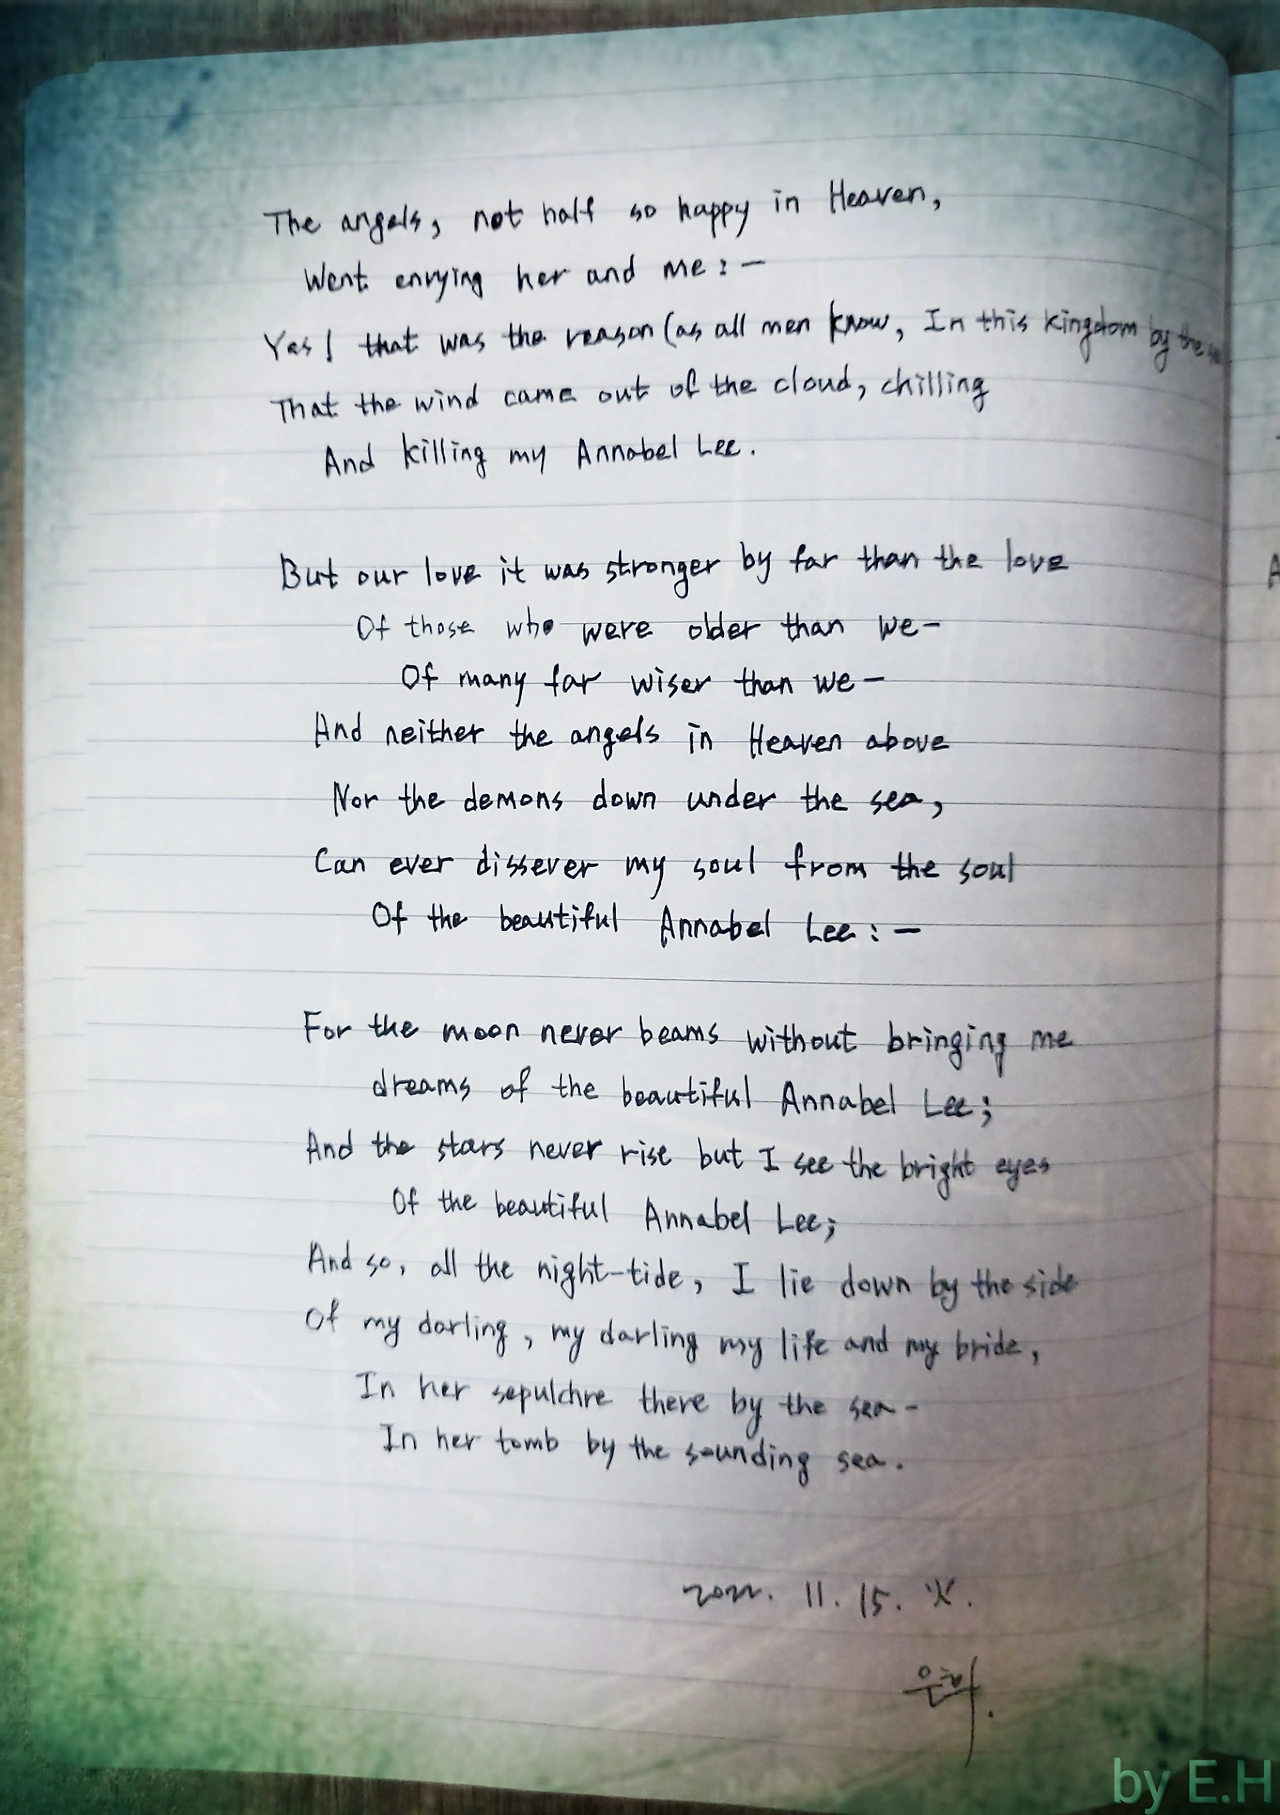 The angels, not half so happy in Heaven,
Went envying her and me : —
Yes! that was the reason (as all men know, In this kingdom by the
That the wind came out of the cloud, chilling
And killing my Annabel Lee.
But our love it was stronger by far than the love
Of those who were older than we-
Of many far wiser than we —
And neither the angels in Heaven above
Nor the demons down under the sea,
Can ever dissever my soul from the soul
Of the beautiful Annabel Lee : —
For the moon never beams without bringing me
dreams of the beautiful Annabel Lee;
And the stars never rise but I see the bright eyes
Of the beautiful Annabel Lee;
And so, all the night-tide, I lie down by the side
Of my darling, my darling my life and my bride,
In her sepulchre there by the sea-
In her tomb by the sounding sea.
2022. 11. 15. 火.
은희.
by E.H